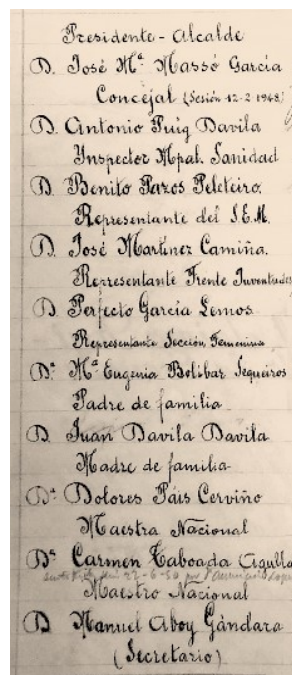 Presidente - Alcalde
D. José Mª Massó García
Concejal (Sesión 12-2-1948)
D. Antonio Puig Davila
Ynspector Mpal. Sanidad
D. Benito Pazos Peleteiro.
Representante del S.E.M.
D. José Martínez Camiña.
Representante Frente Juventudes
D. Perfecto García Lemos
Representante Sección Femenina
Dª. Mª Eugenia Bolibar Sequeiros
Padre de familia
D. Juan Davila Davila
Madre de familia
Dª Dolores Páis Cerviño
Maestra Nacional
Dª Carmen Taboada Agulla
22-6-50 por
Maestro Nacional
D. Manuel Aboy Gándara
(Secretario)